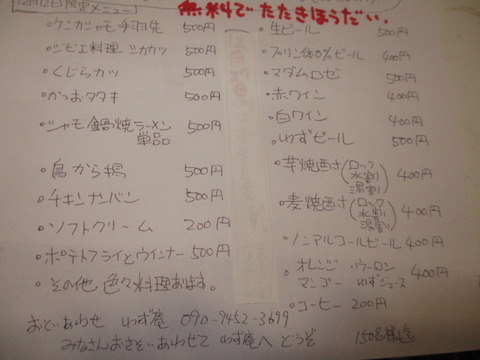 12月12日限定メニュー
無料でたたきほうだい。
・ケンカシャモ手羽先 500円
・ジビエ料理 シカカツ 500円
・くじらカツ 500円
・かつおタタキ 500円
・シャモ鍋焼ラーメン 単品 500円
・鳥から揚 500円
・チキンナンバン 500円
・ソフトクリーム 200円
・ポテトフライとウインナー 500円
・その他 色々料理あります。
・生ビール 500円
・プリン体0%ビール 400円
・マダムロゼ 500円
・赤ワイン 400円
・白ワイン 400円
・ゆずビール 500円
・芋焼酎(ロック 水割り 湯割り) 400円
・麦焼酎(ロック 水割り 湯割り) 400円
・ノンアルコールビール 400円
・オレンジ・ウーロン
マンゴー ゆずジュース 400円
・コーヒー 200円
おといあわせ ゆず庵 090-9452-3699
みなさんおさそいあわせて ゆず庵へどうぞ
150名様迄